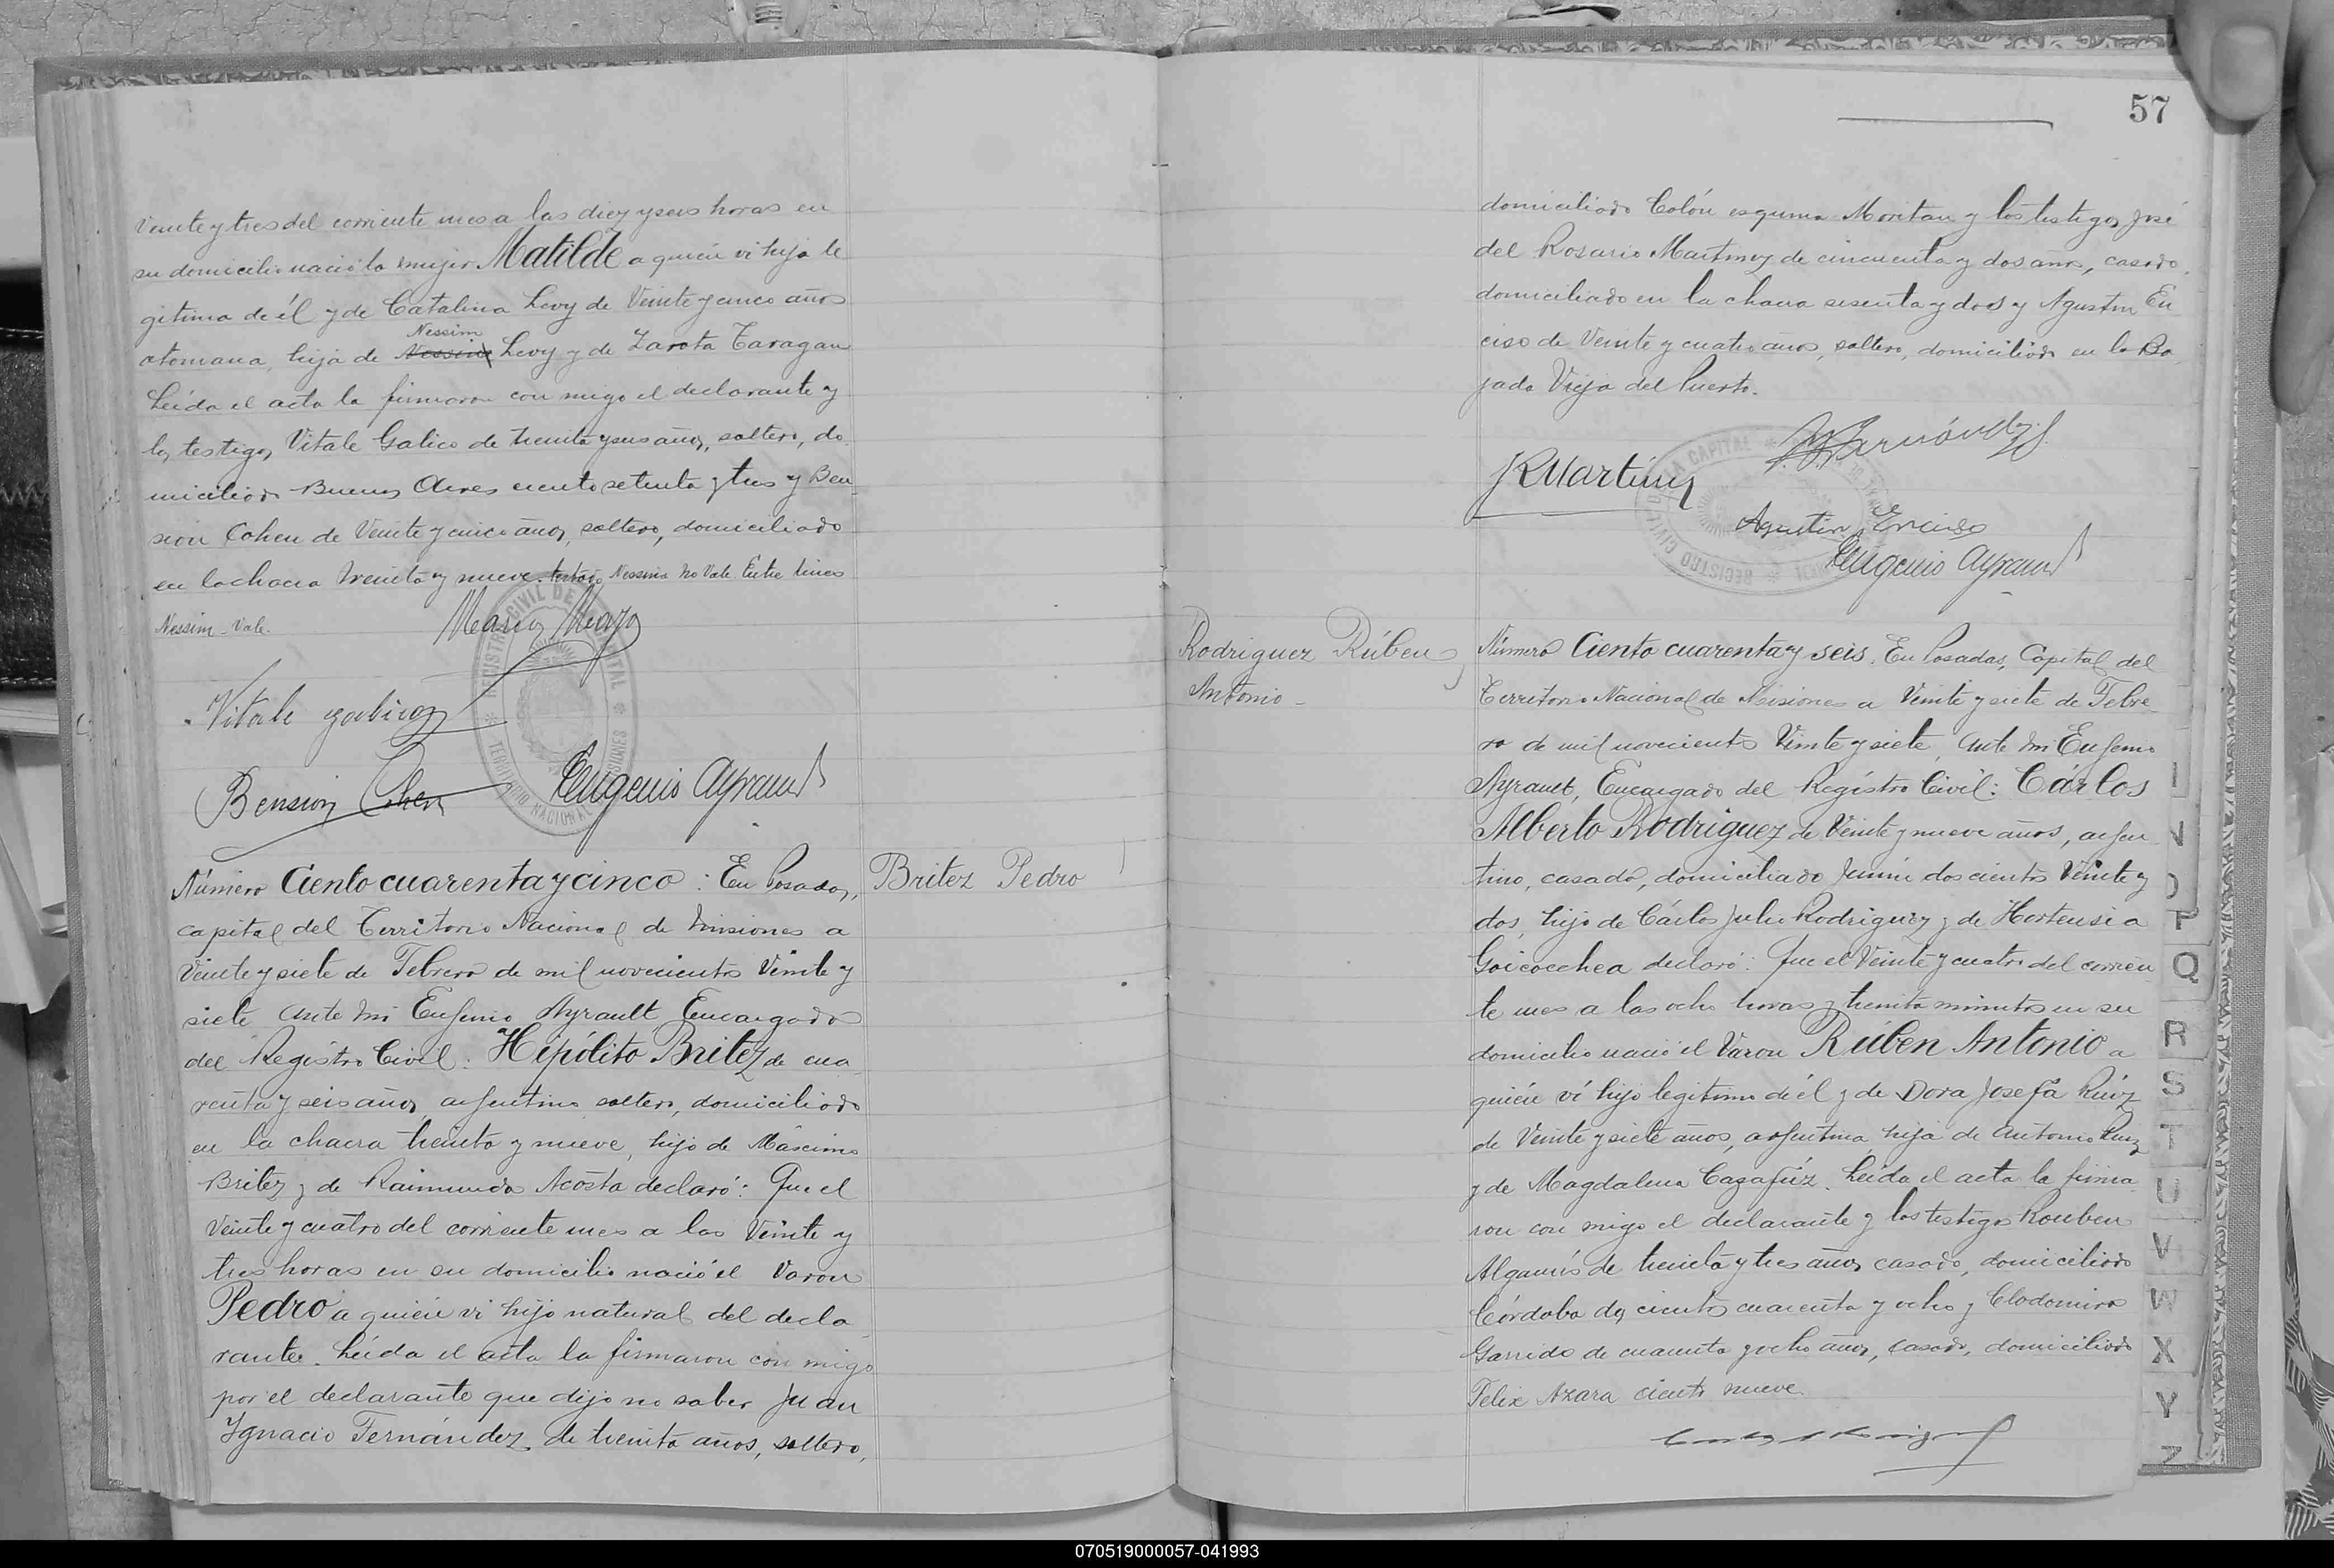 Veinte y tres del corriente mes a las diez y seis horas en
su domicilio nació la mujer Matilde a quien vi hija le
gitima de él y de Catalina Levy de Veinte y cinco años
otomana, hija de Nessim Levy y de Zarota Taragan
Leída el acta la firmaron con migo el declarante y
los testigos Vitale Galico de treinta y seis años, soltero, do
miciliado Buenos Aires ciento setenta y tres y Ben
sion Cohen de Veinte y cinco años, soltero, domiciliado
en la chacra treinta y nueve. testado Nessim No Vale. Entre lineas
Nessim - Vale.
Vitale
Bension Cohen
Eugenio Ayrault
REGISTRO CIVIL DE LA CAPITAL
TERRITORIO NACIONAL DE MISIONES
Número Ciento cuarenta y cinco: En Posadas,
capital del Territorio Nacional de Misiones a
Veinte y siete de Febrero de mil novecientos Veinte y
siete, ante mi Eugenio Ayrault, Encargado
del Registro Civil: Hipólito Britez de cua
renta y seis años, argentino soltero, domiciliado
en la chacra treinta y nueve, hijo de Máscimo
Britez y de Raimunda Acosta declaró: Que el
Veinte y cuatro del corriente mes a las Veinte y
tres horas en su domicilio nació el Varon
Pedro a quien vi hijo natural del decla
rante. Leída el acta la firmaron con migo
por el declarante que dijo no saber Juan
Ygnacio Fernández, de treinta años, soltero,
Britez Pedro
57
domiciliado Colón esquina Moritan y los testigos José
del Rosario Martinez de cincuenta y dos años, casado,
domiciliado en la chacra sesenta y dos y Agustin En
ciso de Veinte y cuatro años, soltero, domiciliado en la Ba
jada Vieja del Puerto.
JRMartínez
Agustin Enciso
Eugenio Ayrault
REGISTRO CIVIL DE LA CAPITAL
Rodriguez Rúben
Antonio -
Número Ciento cuarenta y seis. En Posadas, Capital del
Territorio Nacional de Misiones a Veinte y siete de Febre
ro de mil novecientos Veinte y siete, ante mi Eugenio
Ayrault, Encargado del Registro Civil: Cárlos
Alberto Rodriguez de Veinte y nueve años, argen
tino, casado, domiciliado Junin doscientos Veinte y
dos, hijo de Cárlos Julio Rodriguez y de Hortensia
Goicocchea declaró: Que el Veinte y cuatro del corrien
te mes a las ocho horas y treinta minutos en su
domicilio nació el Varon Rúben Antonio a
quién ví hijo legitimo de él y de Dora Josefa Ruiz
de Veinte y siete años, argentina hija de Antonio Ruiz
y de Magdalena Cazafúz. Leída el acta la firma
ron con migo el declarante y los testigos Rouben
Algamis de treinta y tres años, casado, domiciliado
Córdoba doscientos cuarenta y ocho y Clodomiro
Garrido de cuarenta y ocho años, casado, domiciliado
Felix Azara ciento nueve.
P
Q
R
S
T
U
V
W
X
Y
Z
070519000057-041993